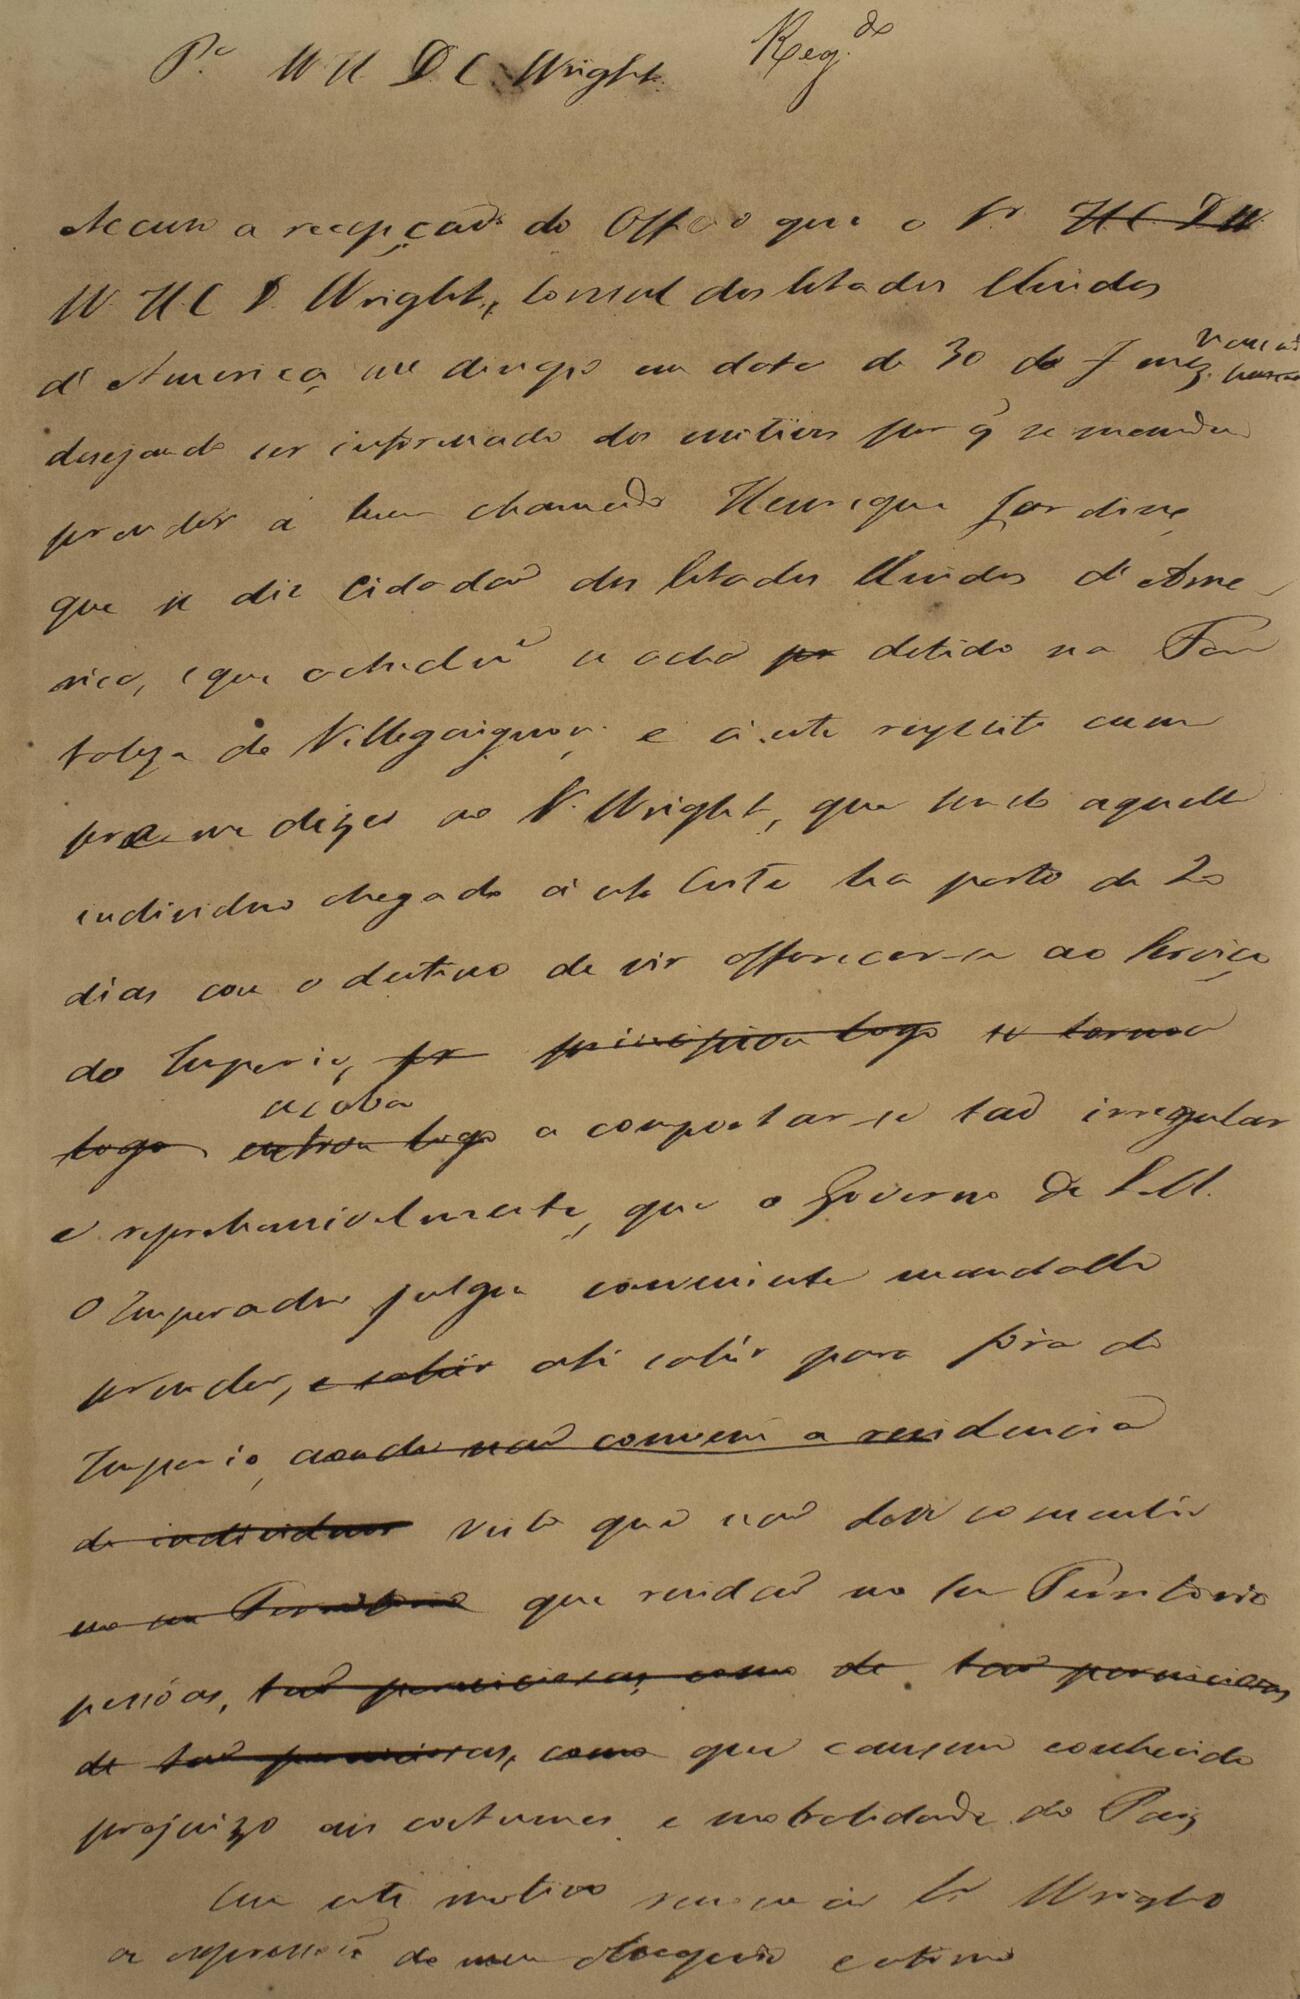 P.ª W H D C Wright. Reg.do
Accuso a recepção do Officio que o Sr. H C D W
W. H C D. Wright, Consul dos Estados Unidos
d'America, me dirigio em data de 30 do mez
desejando ser informado dos motivos por q̃ se mandou
prender a hum chamado Henrique Jardine,
que se diz Cidadão dos Estados Unidos d'Ame-
rica, e que se acha pr detido na For
taleza de Villegaignon; e á este respeito cum
pre me dizer ao Sr. Wright, que sendo aquelle
individuo chegado á esta Corte ha perto de 20
dias com o destino de vir offerecer-se ao Serviço
do Imperio, pr principiou logo se tornou
acaba
logo entrou logo a comportar-se tão irregular
e reprehensivelmente, que o Governo de S. M.
O Imperador julgou conveniente mandallo
prender, e sahir até sahir para fóra do
Imperio, aonde não convem a residencia
de individuos visto que não deve consentir
no seu Territorio que residão no seu Territorio
pessóas, tão perniciosas, como de tão perniciosas
de tão perniciosas, como que causem conhecido
prejuizo aos costumes e moralidade do Paiz
Com este motivo renovo ao Sr Wright
a expressão do meu obsequio e estima